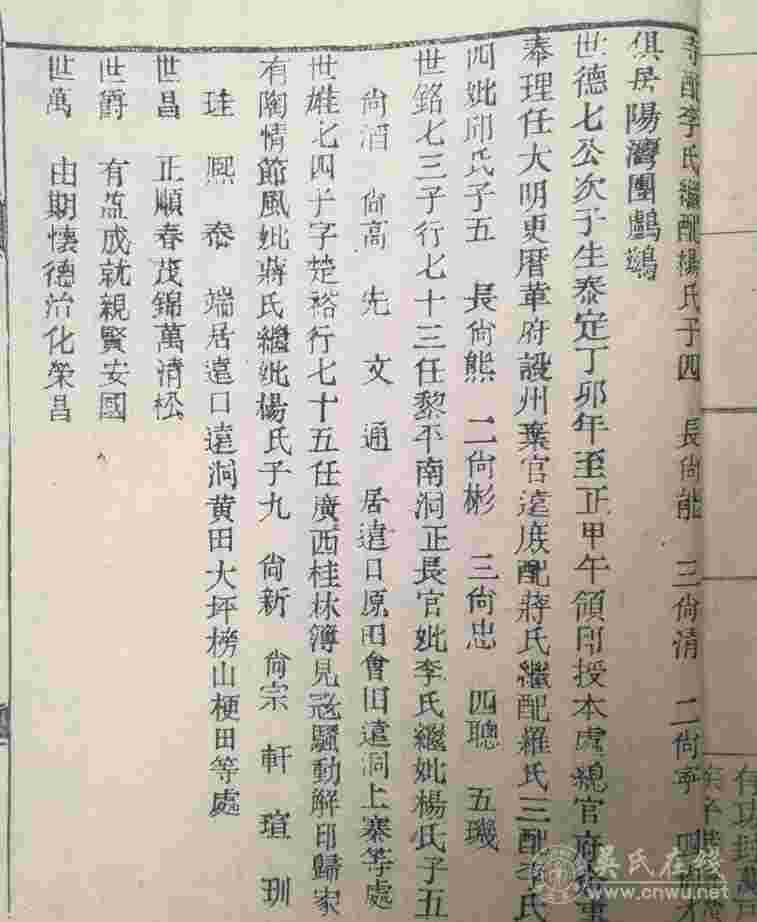 寺配李氏繼配楊氏子四 長尚能 三尚清 二尚亭 四
俱居陽灣團鸕鷀
世德七公次子生泰定丁卯年至正甲午領印授本處總官府
奉理任大明更曆革府設州棄官遠 配蔣氏繼配羅氏三配李氏
四妣邱氏子五 長尚熊 二尚彬 三尚忠 四聰 五璣
世銘七三子行七十三任黎平南洞正長官妣李氏繼妣楊氏子五
尚酒 尚高 先 文 通 居遠口原田會旧遠洞上寨等處
世雄七四子字楚裕行七十五任廣西桂林簿見寇騷動解印歸家
有陶情節風妣蔣氏繼妣楊氏子九 尚新 尚宗 軒 瑄 玔
珪 熙 泰 端居遠口遠洞黄田大坪榜山梗田等處
世昌 正順春茂錦萬清松
世爵 有 成就親賢安國
世萬 由期懷德治化榮昌
有功封
吴氏在线
www.cnwu.net